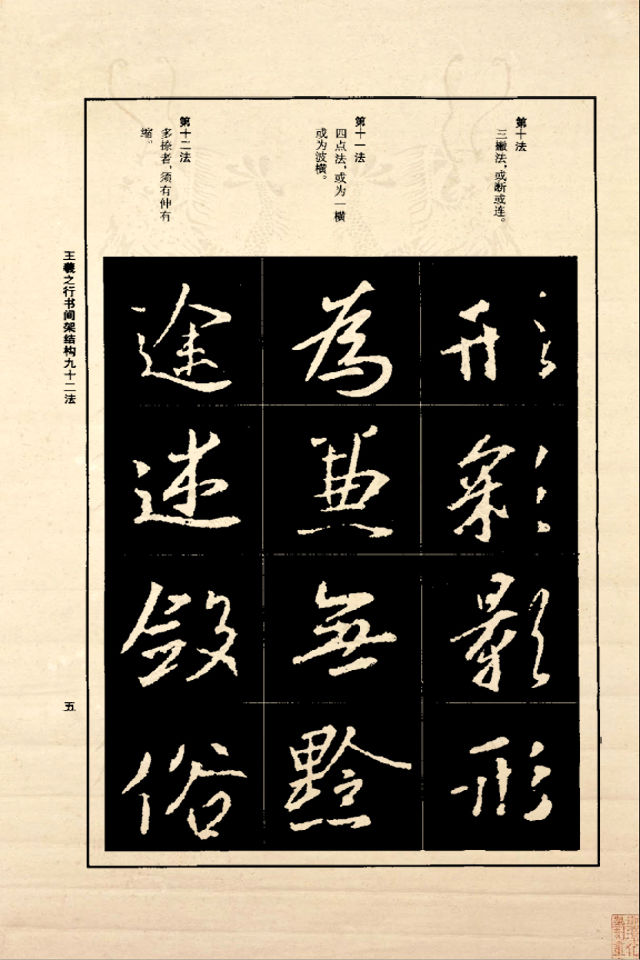 第十法
三撇法，或断或连。
第十一法
四点法，或为一横
或为波横。
第十二法
多捺者，须有伸有
缩。
形彩影形
為兼無黔
途述斂俗
王羲之行书间架结构九十二法
五